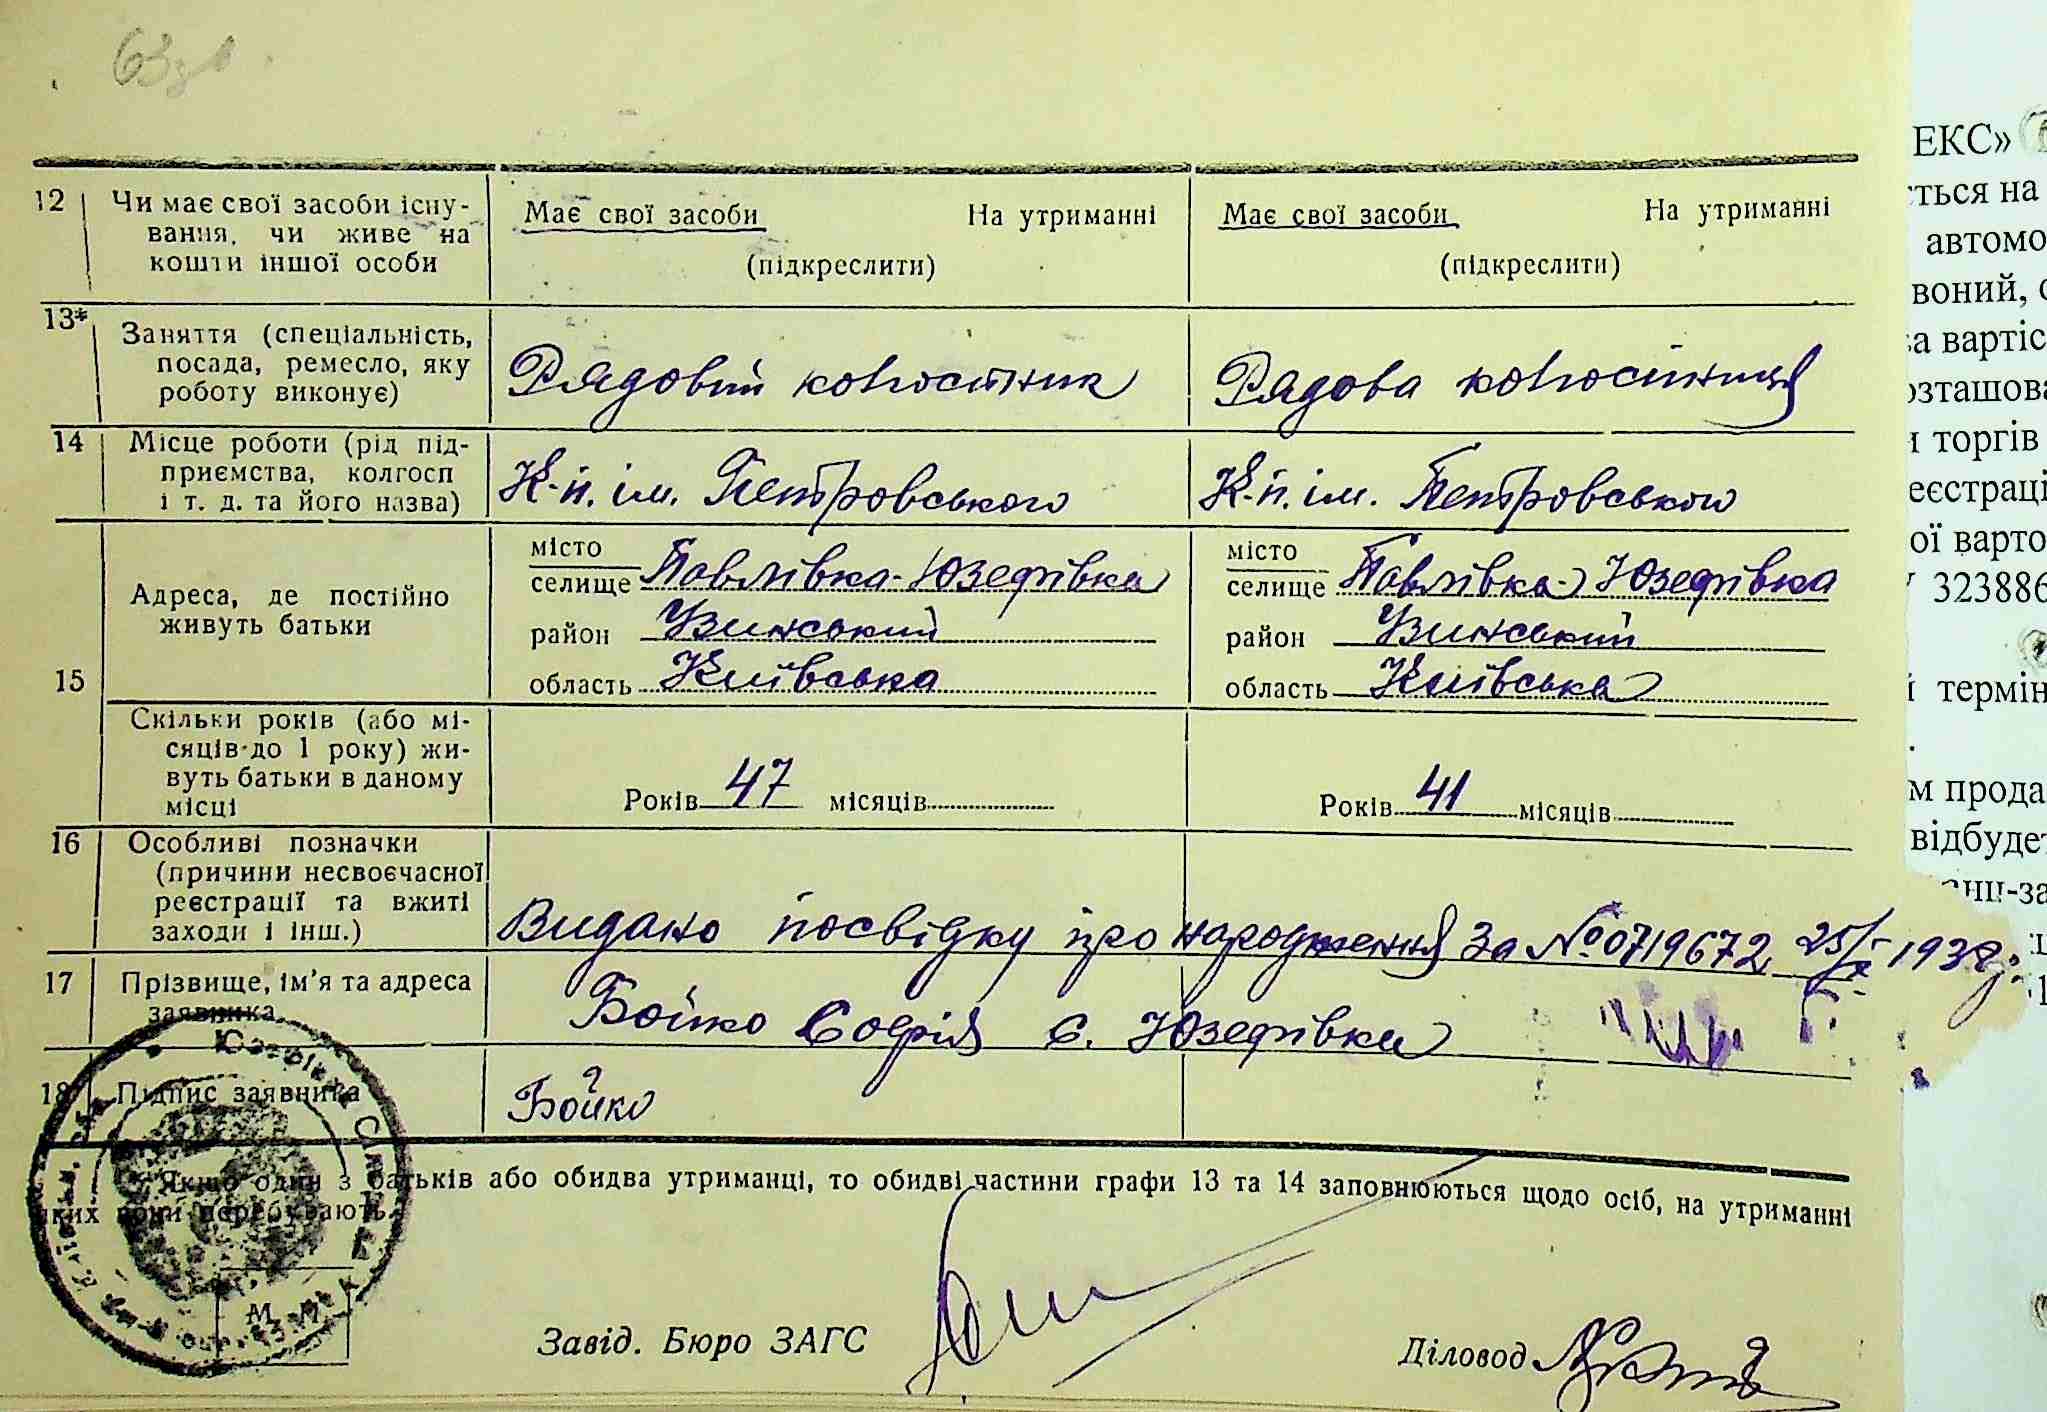 63 зв.
12 Чи має свої засоби існу-
вання, чи живе на
кошти іншої особи
Має свої засоби На утриманні
(підкреслити)
Має свої засоби На утриманні
(підкреслити)
13* Заняття (спеціальність,
посада, ремесло, яку
роботу виконує)
Рядовий колгоспник
Рядова колгоспниця
14 Місце роботи (рід під-
приємства, колгосп
і т. д. та його назва)
К-п. ім. Петровського
К-п. ім. Петровського
15
Адреса, де постійно
живуть батьки
місто
селище Павлівка-Юзефівка
район Узинський
область Київська
місто
селище Павлівка-Юзефівка
район Узинський
область Київська
Скільки років (або мі-
сяців до 1 року) жи-
вуть батьки в даному
місці
Років 47 місяців
Років 41 місяців
16 Особливі позначки
(причини несвоєчасної
реєстрації та вжиті
заходи і інш.)
Видано посвідку про народження за № 0719672 25/X 1938 р.
17 Прізвище, ім'я та адреса
заявника
Бойко Софія с. Юзефівка
18 Підпис заявника
Бойко
Якщо один з батьків або обидва утриманці, то обидві частини графи 13 та 14 заповнюються щодо осіб, на утриманні
яких вони перебувають.
М. П.
Завід. Бюро ЗАГС
Діловод
ЕКС»
ється на
автомо
воний, с
ва вартіс
озташова
и торгів
еєстраці
ої варто
323886
й термін
м прода
відбудет